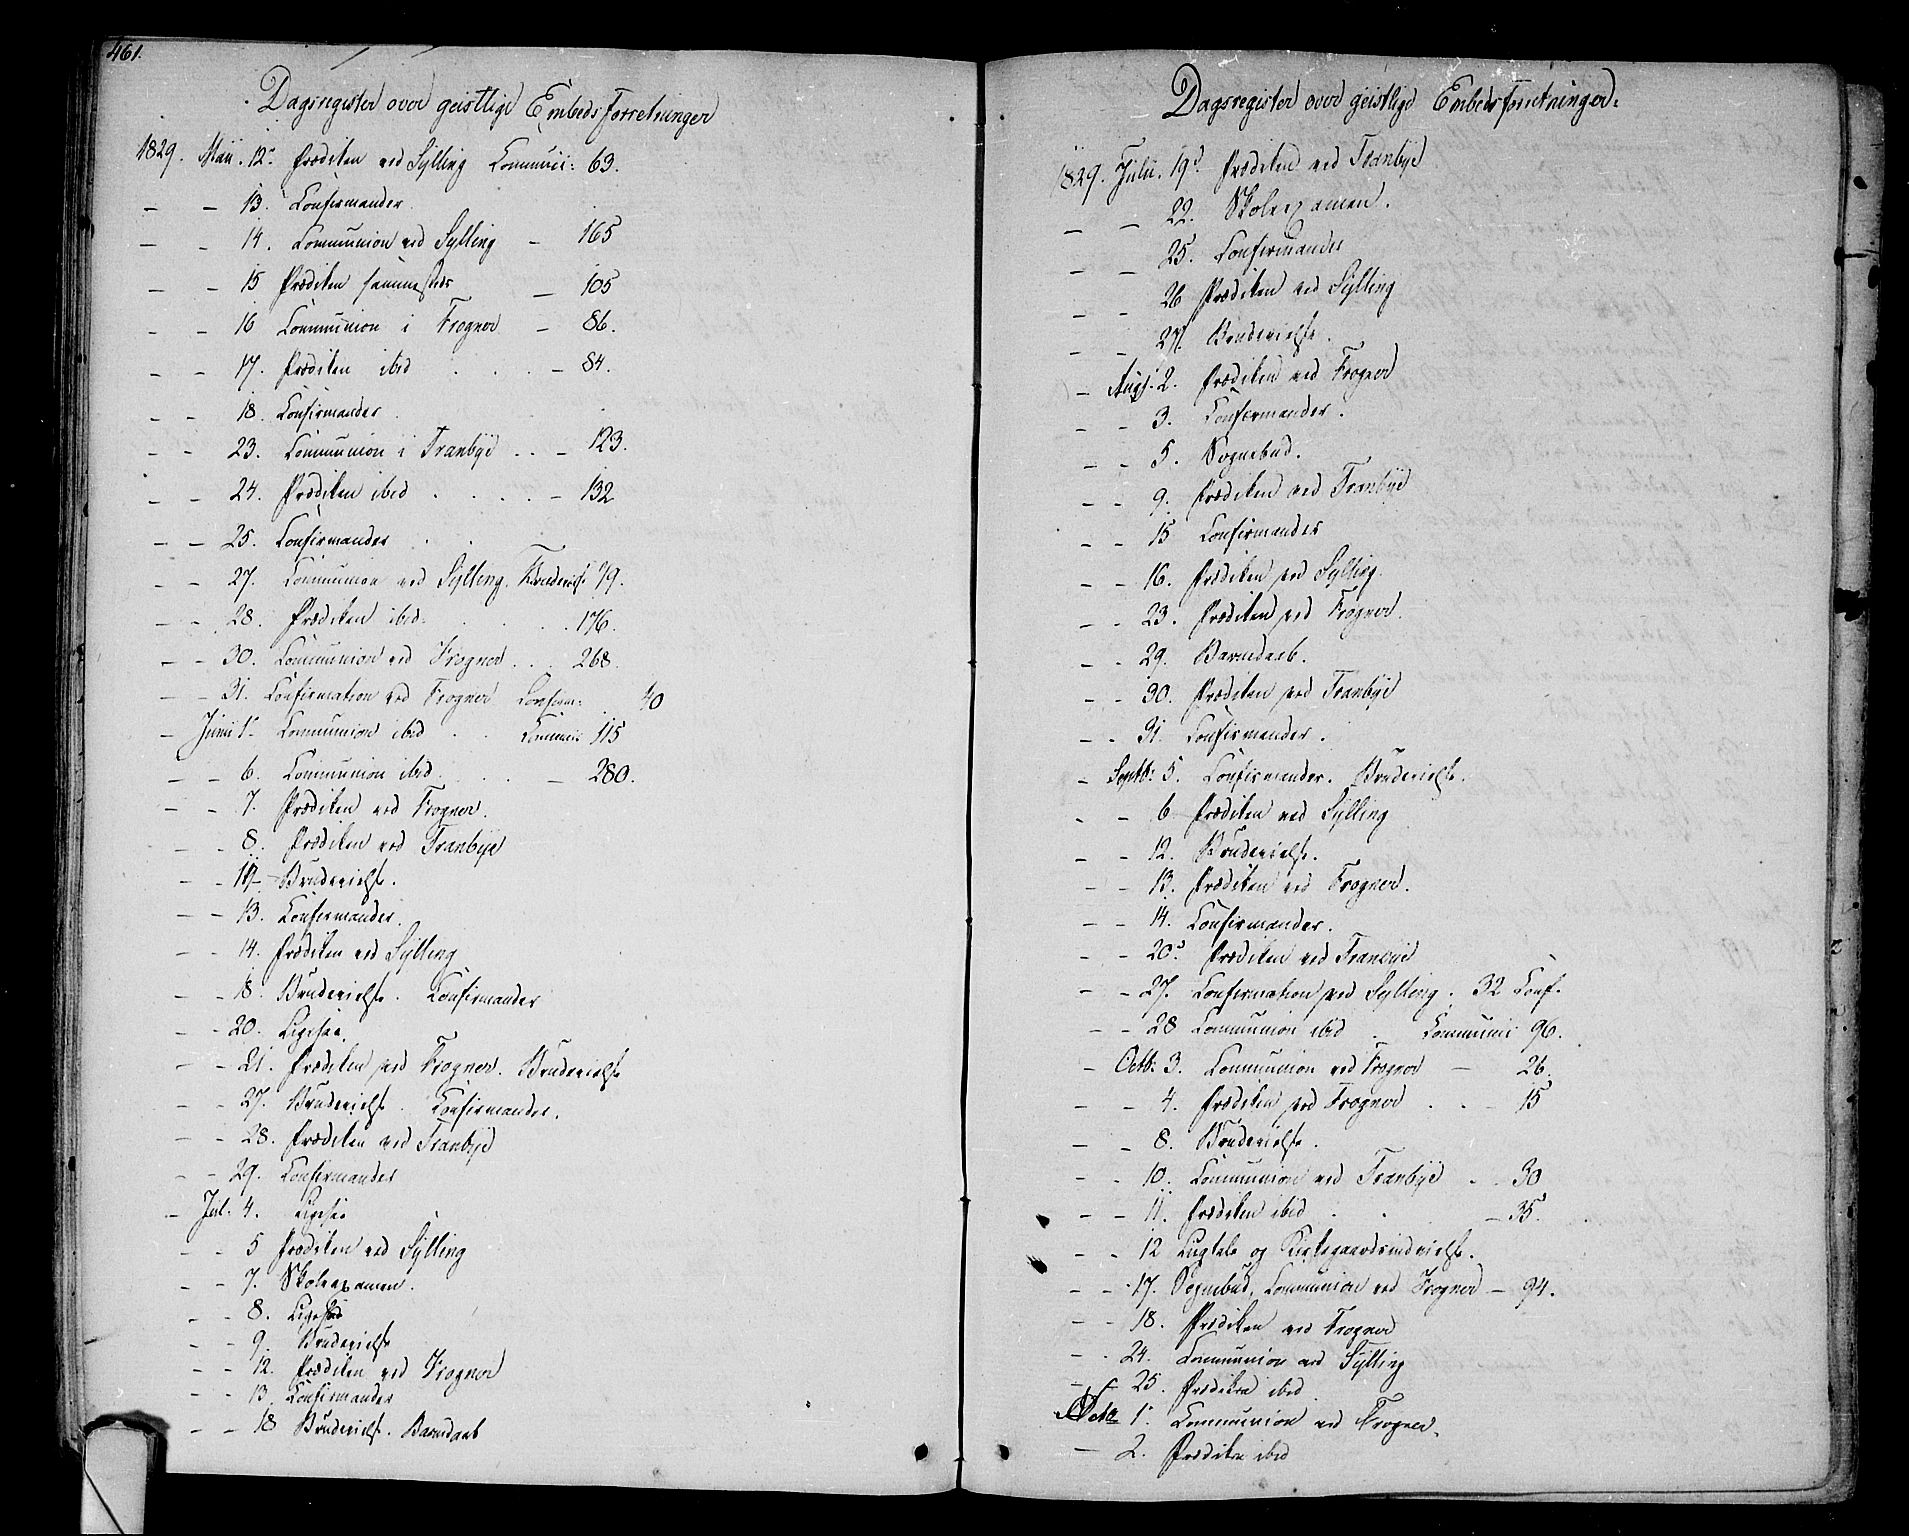 461.
Dagsregister over geistlige Embedsforretninger
1829. Maii. 12. Prædiken ved Sylling Communic: 63.
— — 13. Confirmander.
— — 14. Communion ved Sylling — 165
— — 15 Prædiken sammesteds — 105
— — 16 Communion i Frogner — 86.
— — 17. Prædiken ibid . . . — 84.
— — 18. Confirmander.
— — 23. Communion i Tranbye . . — 123.
— — 24. Prædiken ibid . . . . — 132
— — 25. Confirmander
— — 27. Communion ved Sylling. 79.
— — 28. Prædiken ibid. . . . . 176.
— — 30. Communion ved Frogner . . . 268.
— — 31. Confirmation ved Frogner Confirm: 40
— Junii 1. Communion ibid . . Communic: 115
— — 6. Communion ibid. . . . — 280.
— — 7. Prædiken ved Frogner.
— — 8. Prædiken ved Tranbye
— — Brudevielse.
— — 13. Confirmander.
— — 14. Prædiken ved Sylling
— — 18. Brudevielse. Confirmander
— — 20. Ligefær.
— — 21. Prædiken ved Frogner. Brudevielse
— — 27. Brudevielse. Confirmander.
— — 28. Prædiken ved Tranbye
— — 29. Confirmander
— Jul. 4.
— — 5 Prædiken ved Sylling
— — 7. Skoleexamen.
— — 8.
— — 9. Brudevielse
— — 12. Prædiken ved Frogner
— — 13. Confirmander
— — 18 Brudevielse. Barnedaab
Dagsregister over geistlige Embedsforretninger.
1829. Julii. 19. Prædiken ved Tranbye
— — 22. Skoleexamen.
— — 25. Confirmander
— — 26 Prædiken ved Sylling
— — 27. Brudevielse.
— Aug: 2. Prædiken ved Frogner
— — 3. Confirmander.
— — 5. Sognebud.
— — 9. Prædiken ved Tranbye
— — 15 Confirmander
— — 16. Prædiken ved Sylling.
— — 23. Prædiken ved Frogner.
— — 29. Barnedaab.
— — 30. Prædiken ved Tranbye
— — 31. Confirmander.
— Septb: 5. Confirmander. Brudevielse.
— — 6. Prædiken ved Sylling
— — 12. Brudevielse.
— — 13. Prædiken ved Frogner.
— — 14. Confirmander.
— — 20. Prædiken ved Tranbye
— — 27. Confirmation ved Sylling. 32 Conf.
— — 28 Communion ibid . Communic 96.
— Octb: 3. Communion ved Frogner — 26.
— — 4. Prædiken ved Frogner . . — 15
— — 8. Brudevielse.
— — 10. Communion ved Tranbye . . 30
— — 11. Prædiken ibid . . — 35.
— — 12 Ligtale og Kirkegaardsindvielse.
— — 17. Sognebud, Communion ved Frogner — 94.
— — 18. Prædiken ved Frogner
— — 24. Communion ved Sylling
— — 25. Prædiken ibid
1. Communion ved Frogner.
— 2. Prædiken ibid